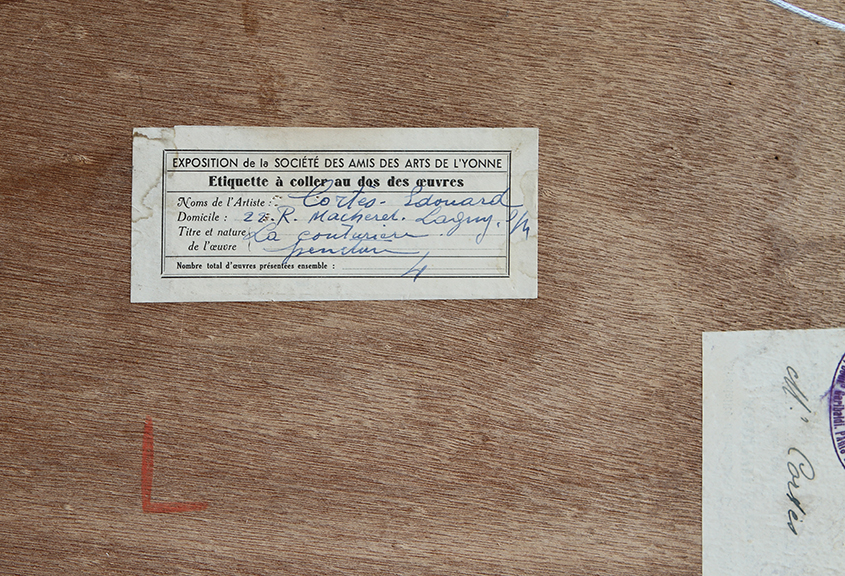 EXPOSITION de la SOCIÉTÉ DES AMIS DES ARTS DE L'YONNE
Etiquette à coller au dos des œuvres
Noms de l'Artiste : Cortes - Edouard
Domicile : 22 R. Macheret. Lagny. S/M
Titre et nature La couturière
de l'œuvre
Nombre total d'œuvres présentées ensemble : 4
Mr Cortès